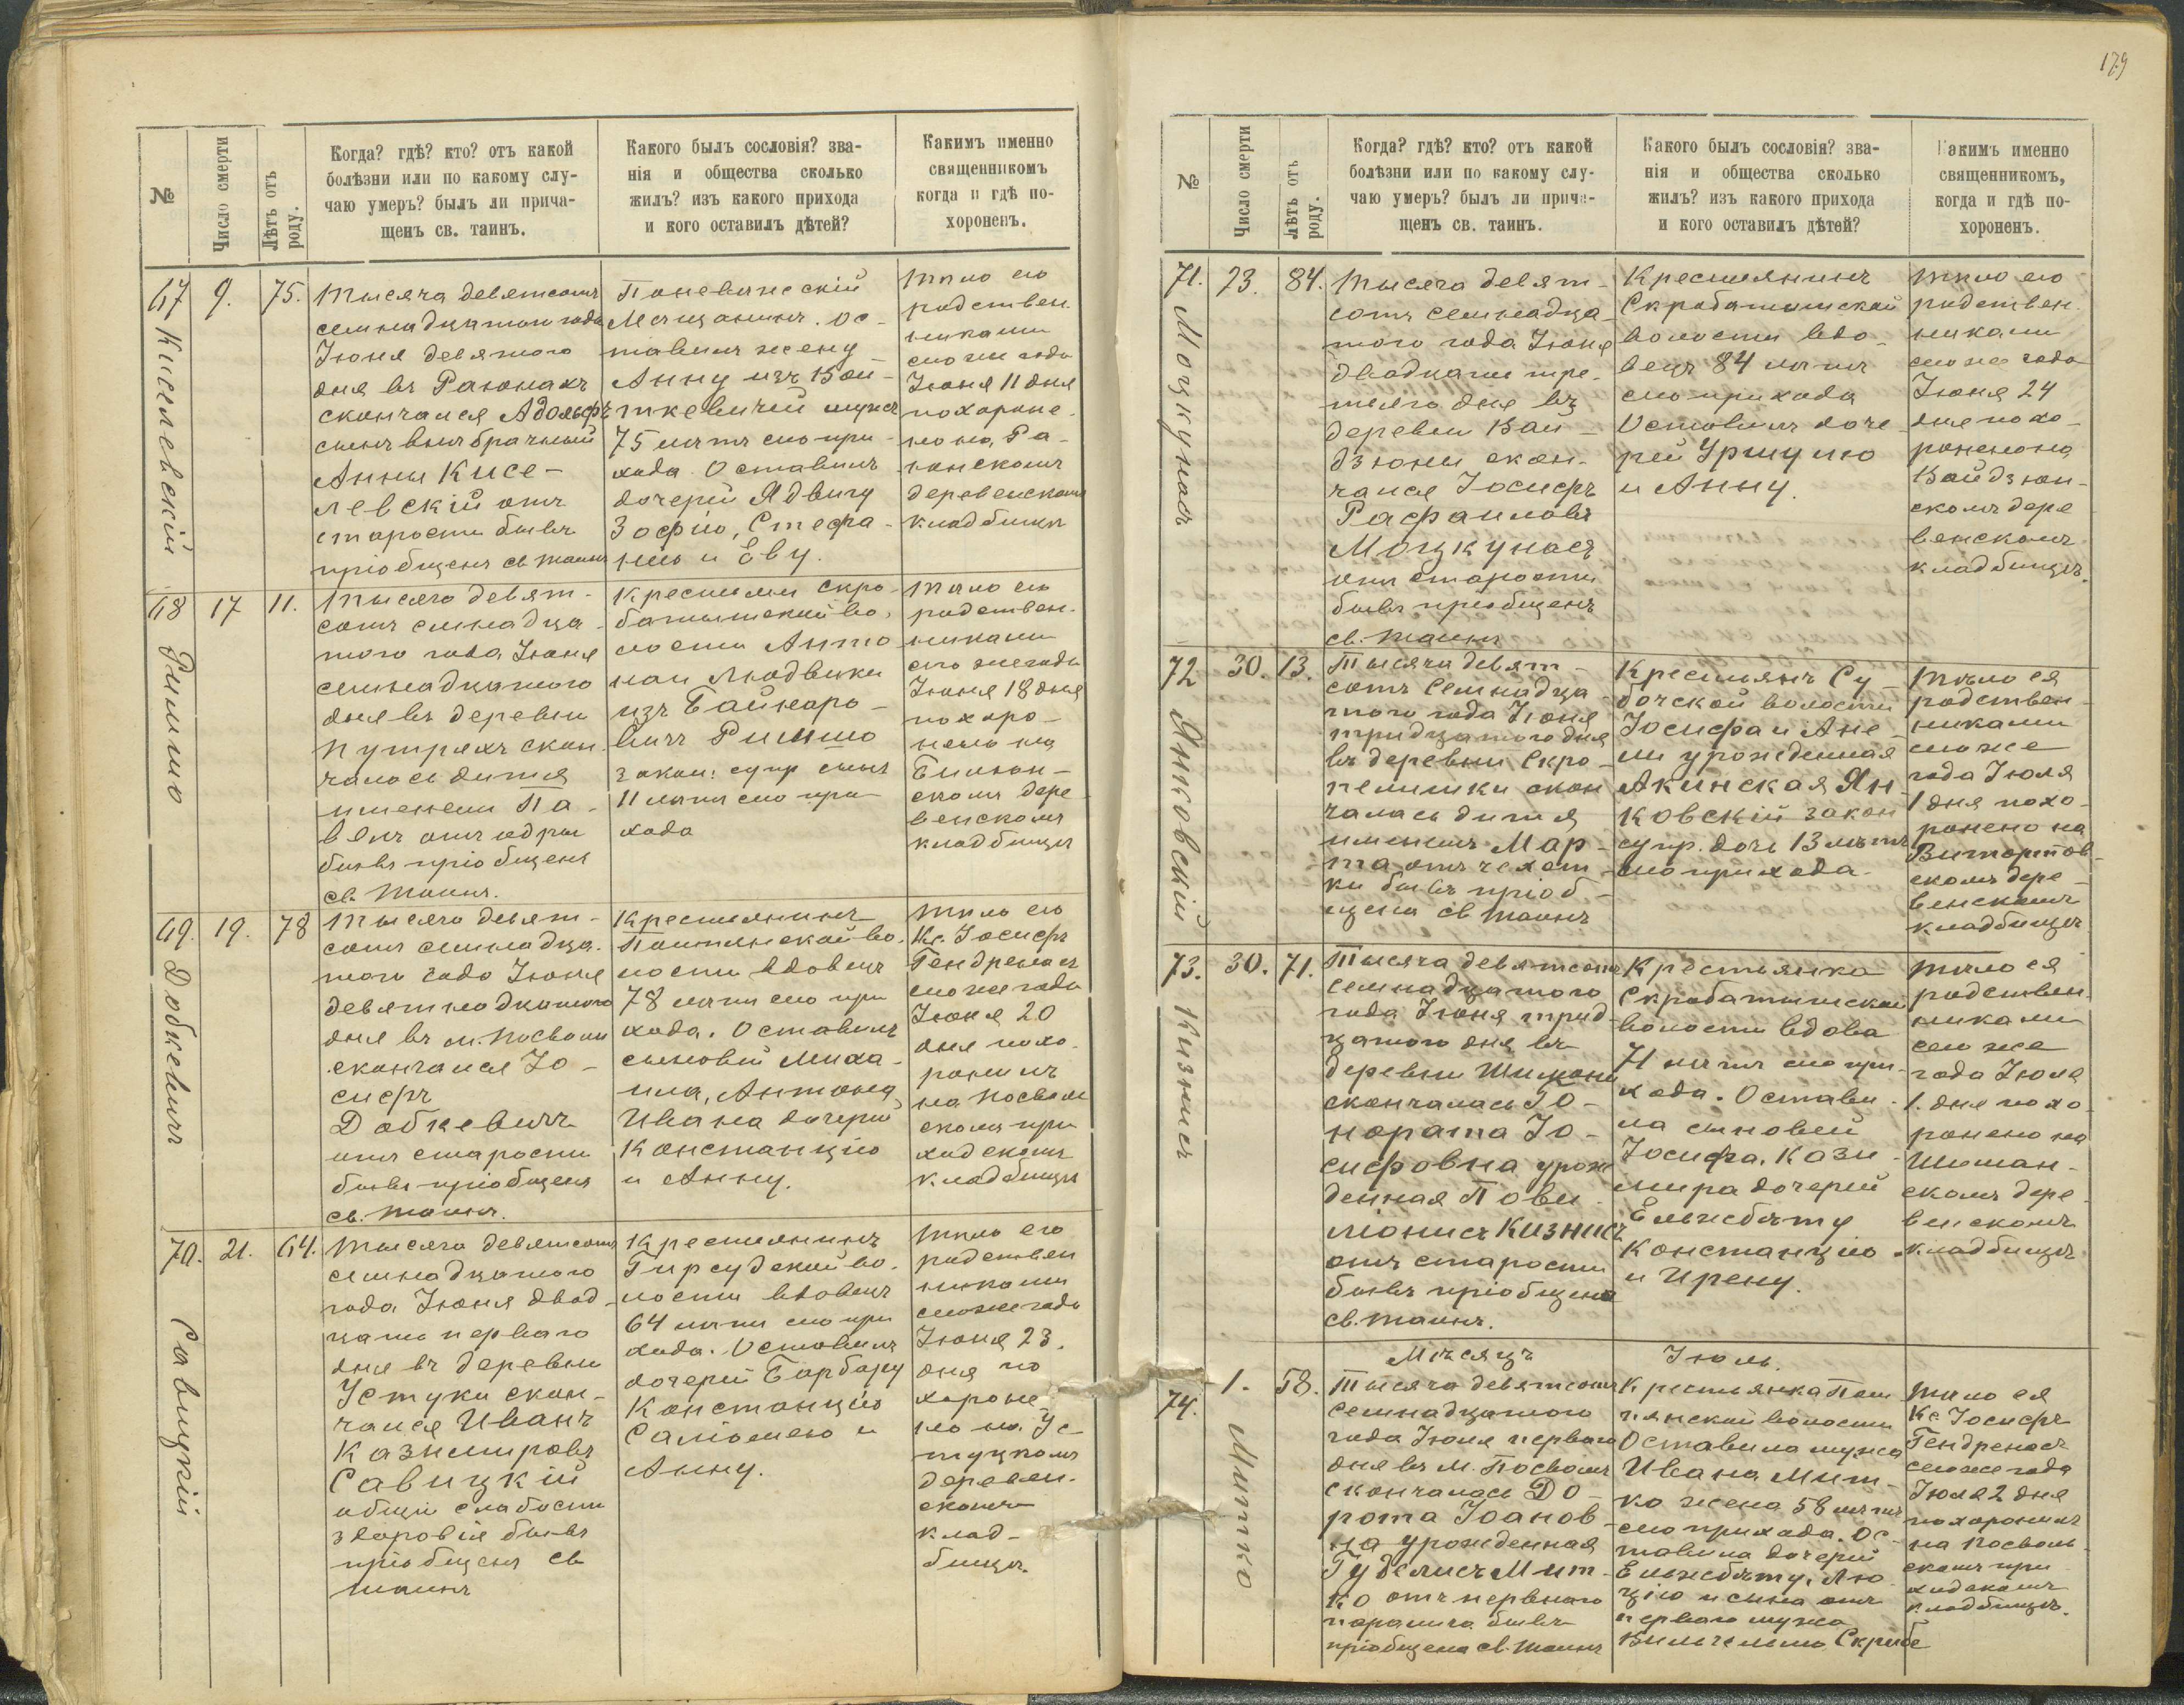 179
№
Число смерти
Лѣтъ отъ
роду.
Когда? гдѣ? кто? отъ какой
болѣзни или по какому слу-
чаю умеръ? былъ ли прича-
щенъ св. таинъ.
Какого былъ сословія? зва-
нія и общества сколько
жилъ? изъ какого прихода
и кого оставилъ дѣтей?
Какимъ именно
священникомъ
когда и гдѣ по-
хороненъ.
67
Киселевскій
9.
75.
Тысяча девятсотъ
семнадцатого года
Іюня девятого
дня въ Раюнахъ
скончался Адольфъ
сынъ внѣбрачный
Анны Кисе-
левскій отъ
старости бывъ
пріобщенъ св таинъ
Поневѣжскій
Мѣщанинъ. Ос-
тавилъ жену
Анну изъ Вой-
ткевичей мужъ
75 лѣтъ сего при-
хода Оставилъ
дочерей Ядвигу
Зофію, Стефа-
нію и Еву.
Тѣло его
родствен-
никами
сего же года
Іюня 11 дня
похороне-
но на Ра-
юнскомъ
деревенскомъ
кладбищѣ
68
Римшо
17
11.
Тысяча девят-
сотъ семнадца-
того года Іюня
семнадцатого
дня въ деревни
Путряхъ скон-
чалось дитя
именемъ Па-
велъ отъ одры
бывъ пріобщенъ
св. Таинъ.
Крестьянъ Скро-
батышской во-
лости Анто-
на и Людвики
изъ Байкаро-
вичъ Римшо
закон: супр сынъ
11 лѣтъ сего при
хода
Тѣло его
родствен-
никами
сего же года
Іюня 18 дня
похоро-
нено на
Билюн-
скомъ дере-
венскомъ
кладбищѣ
69.
Добкевичъ
19.
78
Тысяча девят-
сотъ семнадца-
того года Іюня
девятнадцатого
дня въ м. Посволи
скончался Іо-
сифъ
Добкевичъ
отъ старости
бывъ пріобщенъ
св. Таинъ.
Крестьянинъ
Понтянской во-
лости вдовецъ
78 лѣтъ сего при
хода. Оставилъ
сыновей Миха-
ила, Антона,
Ивана дочерей
Констанцію
и Анну.
Тѣло его
Кс. Іосифъ
Гендренасъ
сего же года
Іюня 20
дня похо-
ронилъ
на Посволь
скомъ при
ходскомъ
кладбищѣ
70.
Савицкій
21.
64.
Тысяча девятсотъ
семнадцатого
года Іюня двад-
цать первого
дня въ деревни
Устуки скон-
чался Иванъ
Казимировъ
Савицкій
общей слабости
здоровія бывъ
пріобщенъ св
таинъ
Крестьянинъ
Гирсудской во-
лости вдовецъ
64 лѣтъ сего при
хода. Оставилъ
дочерей Барбару
Констанцію
Саломею и
Анну.
Тѣло его
родствен
никами
сего же года
Іюня 23.
дня по
хороне-
но на Ус-
туцкомъ
деревен-
скомъ
клад-
бищѣ.
№
Число смерти
Лѣтъ отъ
роду.
Когда? гдѣ? кто? отъ какой
болѣзни или по какому слу-
чаю умеръ? былъ ли прича-
щенъ св. таинъ.
Какого былъ сословія? зва-
нія и общества сколько
жилъ? изъ какого прихода
и кого оставилъ дѣтей?
Какимъ именно
священникомъ,
когда и гдѣ по-
хороненъ.
71.
Моцкунасъ
23.
84.
Тысяча девят-
сотъ семнадца-
того года Іюня
двадцать тре-
тьяго дня въ
деревни Вай-
дзюны скон-
чался Іосифъ
Рафаиловъ
Моцкунасъ
отъ старости
бывъ пріобщенъ
св. таинъ
Крестьянинъ
Скробатышской
волости вдо-
вецъ 84 лѣтъ
сего прихода
Оставилъ доче-
рей Уршулю
и Анну.
Тѣло его
родствен-
никами
сего же года
Іюня 24
дня похо-
ронено на
Вайдзюн-
скомъ дере
венскомъ
кладбищѣ.
72
Янковскій
30.
13.
Тысяча девят-
сотъ семнадца
того года Іюня
тридцатого дня
въ деревни Скро-
пелишки скон
чалась дитя
именемъ Мар-
та отъ чехот-
ки бывъ пріоб-
щена св таинъ
Крестьянъ Су-
бочской волости
Іосифа и Ане-
ли урожденная
Акинская Ян-
ковскій закон
супр. дочь 13 лѣтъ
сего прихода.
Тѣло ея
родствен-
никами
сего же
года Іюля
1 дня похо-
ронено на
Витортов-
скомъ дере-
венскомъ
кладбищѣ
73.
Кизнисъ
30.
71.
Тысяча девятсотъ
семнадцатого
года Іюня трид-
цатого дня въ
деревни Шимони
скончалась Го-
нората Іо-
сифовна урож
денная Пови-
ліонисъ Кизнисъ
отъ старости
бывъ пріобщена
св. таинъ.
Крестьянка
Скробатышской
волости вдова
71 лѣтъ сего при-
хода. Остави-
ла сыновей
Іосифа, Кази-
мира дочерей
Ельжбѣту
Констанцію
и Ирену.
Тѣло ея
родствен-
никами
сего же
года Іюля
1. дня похо-
ронено на
Шиман-
скомъ дере-
венскомъ
кладбищѣ
Мѣсяцъ Іюль.
74.
Митко
1.
58.
Тысяча девятсотъ
семнадцатого
года Іюля первого
дня въ м. Посволѣ
скончалась До-
рота Іоанов-
на урожденная
Гуделисъ Мит-
ко отъ нервного
паралича бывъ
пріобщена св. Таинъ
Крестьянка Пон
тянской волости
Оставила мужа
Ивана Мит-
ко жена 58 лѣтъ
сего прихода. Ос-
тавила дочерей
Ельжбѣту, Лю-
цію и сына отъ
первого мужа
Вильгельма Скрибе
Тѣло ея
Кс Іосифъ
Гендренасъ
сего же года
Іюля 2 дня
похоронилъ
на Посволь-
скомъ при
ходскомъ
кладбищѣ.